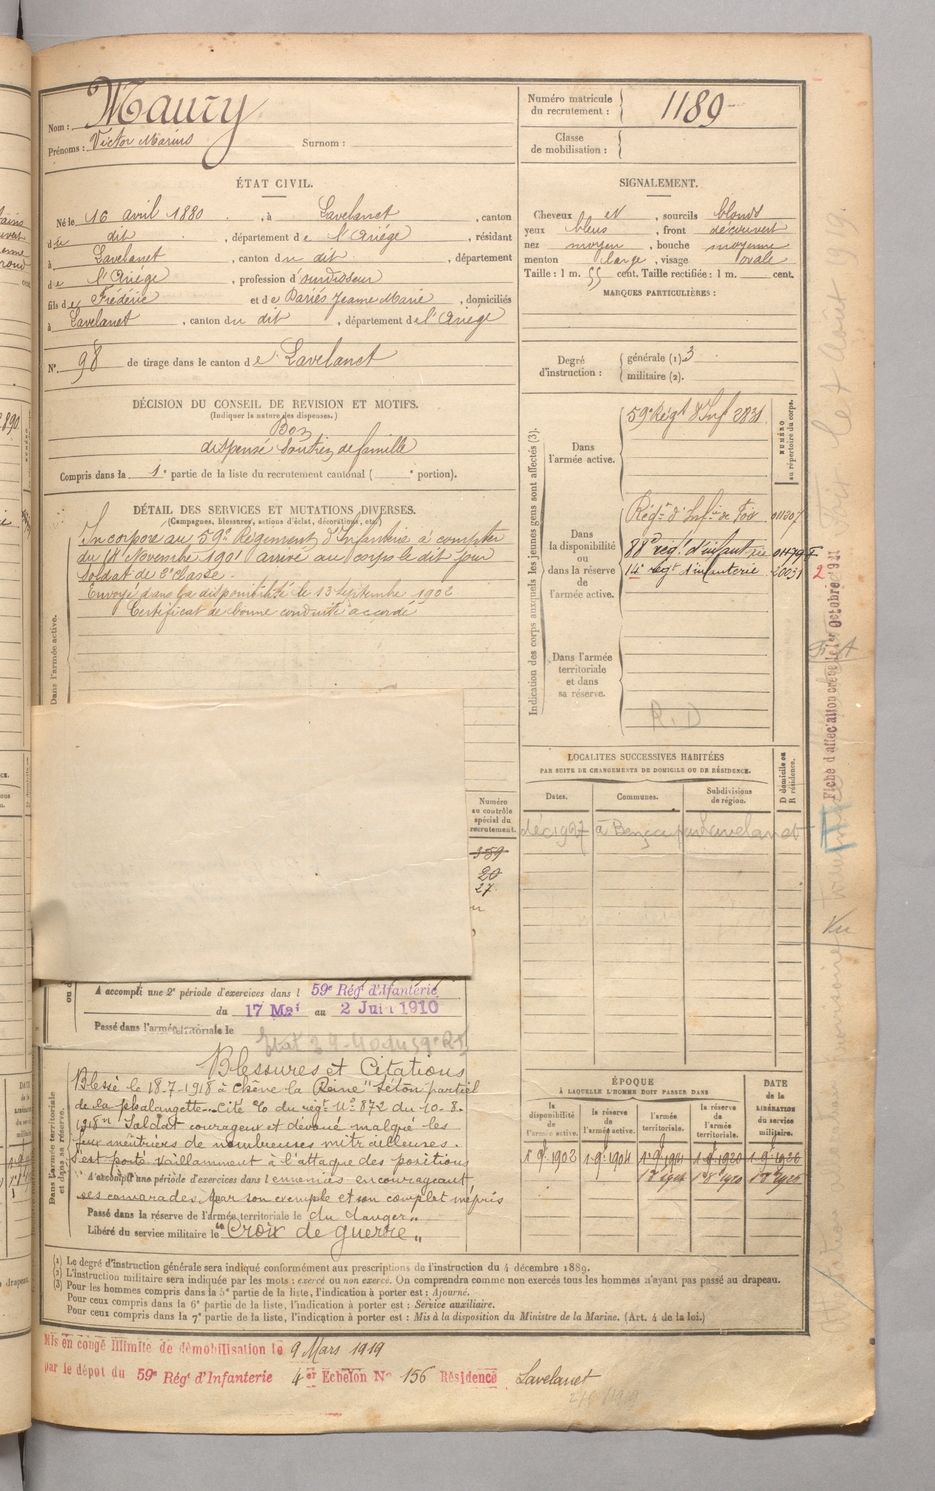 Nom : Maury
Prénoms : Victor Marius Surnom :
Numéro matricule du recrutement : 1189
Classe de mobilisation :
ÉTAT CIVIL.
Né le 16 avril 1880, à Lavelanet, canton
du dit, département de l'Ariège, résidant
à Lavelanet, canton du dit, département
de l'Ariège, profession d'ourdisseur
fils de Frédéric et de Dariés Jeanne Marie, domiciliés
à Lavelanet, canton du dit, département de l'Ariège
N° 98 de tirage dans le canton de Lavelanet
SIGNALEMENT.
Cheveux et, sourcils blonds
yeux bleus, front découvert
nez moyen, bouche moyenne
menton large, visage ovale
Taille : 1 m. 55 cent. Taille rectifiée : 1 m. cent.
MARQUES PARTICULIÈRES :
Degré d'instruction : générale (1). 3
militaire (2).
DÉCISION DU CONSEIL DE REVISION ET MOTIFS.
(Indiquer la nature des dispenses.)
Bon
dispensé Soutien de famille
Compris dans la 1e partie de la liste du recrutement cantonal ( e portion).
DÉTAIL DES SERVICES ET MUTATIONS DIVERSES.
(Campagnes, blessures, actions d'éclat, décorations, etc.)
Dans l'armée active.
Incorporé au 59e Régiment d'Infanterie à compter
du 14 Novembre 1901 arrivé au corps le dit jour
Soldat de 2e classe.
Envoyé dans la disponibilité le 13 Septembre 1902
Certificat de bonne conduite accordé
Indication des corps auxquels les jeunes gens sont affectés (3).
NUMÉRO au répertoire du corps.
Dans l'armée active.
59e Régt d'Inf 2831
Dans la disponibilité ou dans la réserve de l'armée active.
Régt d'Infie de Foix 011307
88e régt d'infanterie 01479
14e régt d'infanterie 20031
2
Dans l'armée territoriale et dans sa réserve.
R.D
LOCALITÉS SUCCESSIVES HABITÉES
PAR SUITE DE CHANGEMENTS DE DOMICILE OU DE RÉSIDENCE.
Dates. Communes. Subdivisions de région. D domicile ou R résidence.
déc 1927 à par Lavelanet
Numéro au contrôle spécial du recrutement.
359
20
27
A accompli une 2e période d'exercices dans l 59e Régt d'Infanterie
du 17 Mai au 2 Juin 1910
Passé dans l'armée territoriale le
Dans l'armée territoriale et dans sa réserve.
Blessures et Citations
Blessé le 18-7-1918 à Chêne la Reine "séton partiel
de la phalangette. Cité O du régt N° 872 du 10-8-
1918 "Soldat courageux et dévoué malgré les
feux meutriers de nombreuses mitrailleuses.
S'est porté vaillamment à l'attaque des positions
A accompli une période d'exercices dans l
ennemies encourageant
ses camarades par son exemple et son complet mépris
Passé dans la réserve de l'armée territoriale le
du danger"
Libéré du service militaire le
Croix de guerre
ÉPOQUE
À LAQUELLE L'HOMME DOIT PASSER DANS
la disponibilité de l'armée active. la réserve de l'armée active. l'armée territoriale. la réserve de l'armée territoriale. DATE de la LIBÉRATION du service militaire.
(1) Le degré d'instruction générale sera indiqué conformément aux prescriptions de l'instruction du 4 décembre 1889.
(2) L'instruction militaire sera indiquée par les mots : exercé ou non exercé. On comprendra comme non exercés tous les hommes n'ayant pas passé au drapeau.
(3) Pour les hommes compris dans la 5e partie de la liste, l'indication à porter est : Ajourné.
Pour ceux compris dans la 6e partie de la liste, l'indication à porter est : Service auxiliaire.
Pour ceux compris dans la 7e partie de la liste, l'indication à porter est : Mis à la disposition du Ministre de la Marine. (Art. 4 de la loi.)
Mis en congé illimité de démobilisation le 9 Mars 1919
par le dépôt du 59e Régt d'Infanterie 4e Echelon N° 156 Résidence Lavelanet
Fiche d'affectation créée le 1er Octobre 1921
Vu